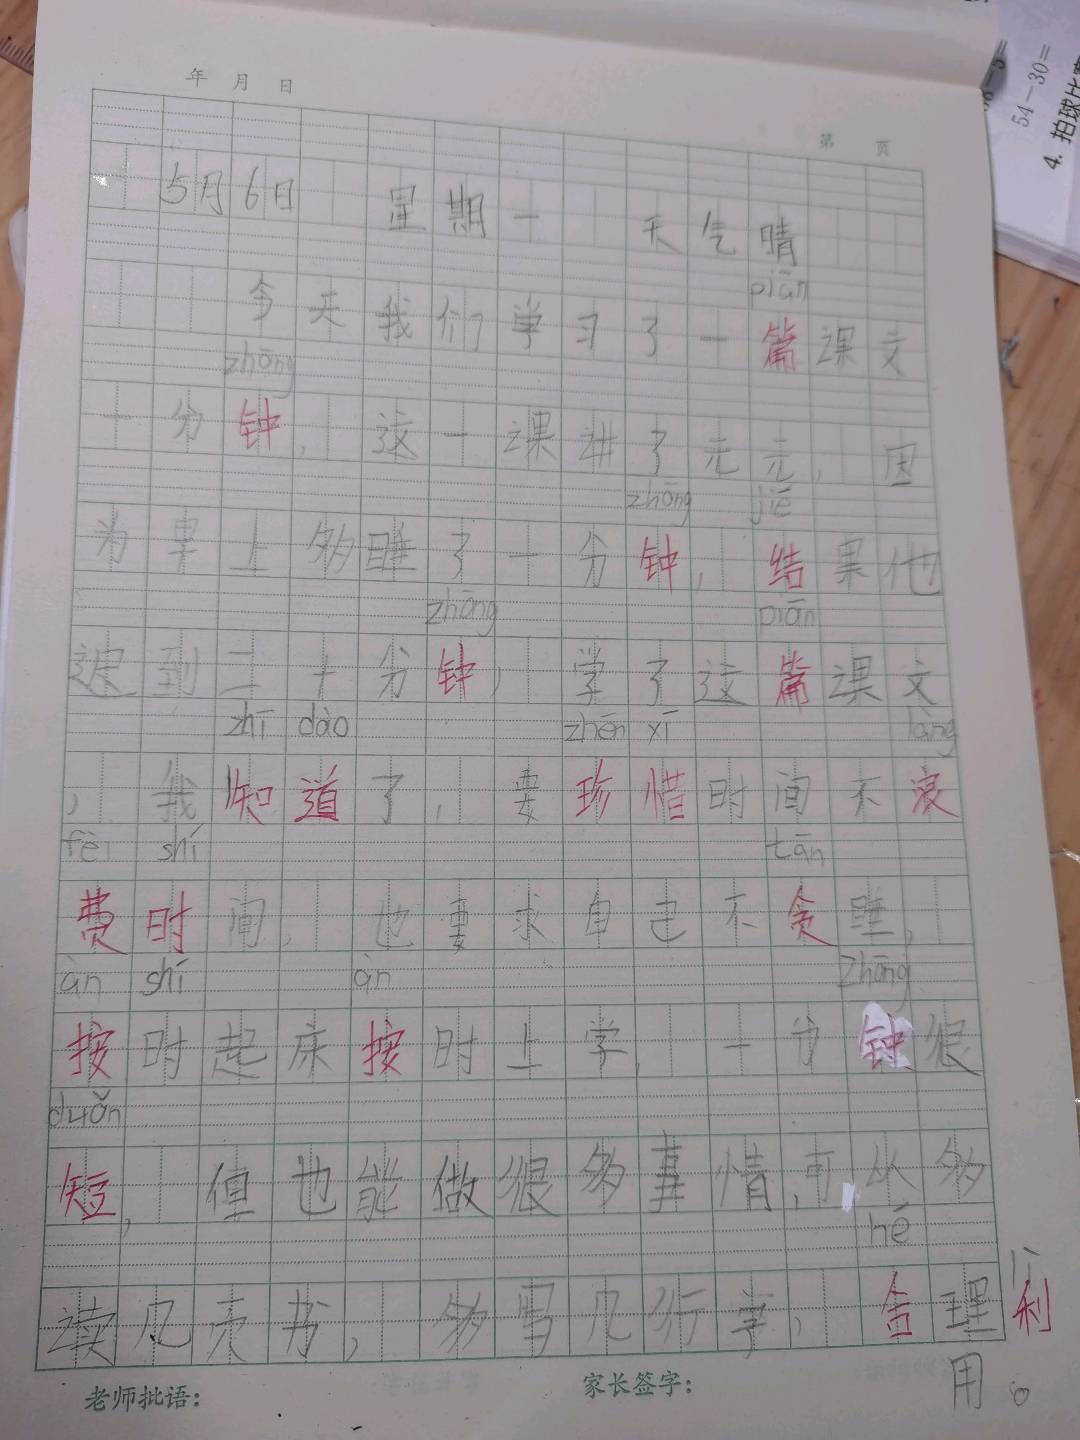 年 月 日
第 页
5月6日 星期一 天气晴
piān
今天我们学习了一篇课文
zhōng
一分钟,这一课讲了元元,因
zhōng jié
为早上多睡了一分钟,结果他
zhōng piān
迟到二十分钟,学了这篇课文
zhī dào zhēn xī làng
,我知道了,要珍惜时间不浪
fèi shí tān
费时间,也要求自己不贪睡,
àn shí àn zhōng
按时起床按时上学,一分钟很
duǎn
短,但也能做很多事情,可以多
hé
读几页书,多写几行字,合理利
lì
用。
老师批语: 家长签字:
54-30=
4. 拍球比赛